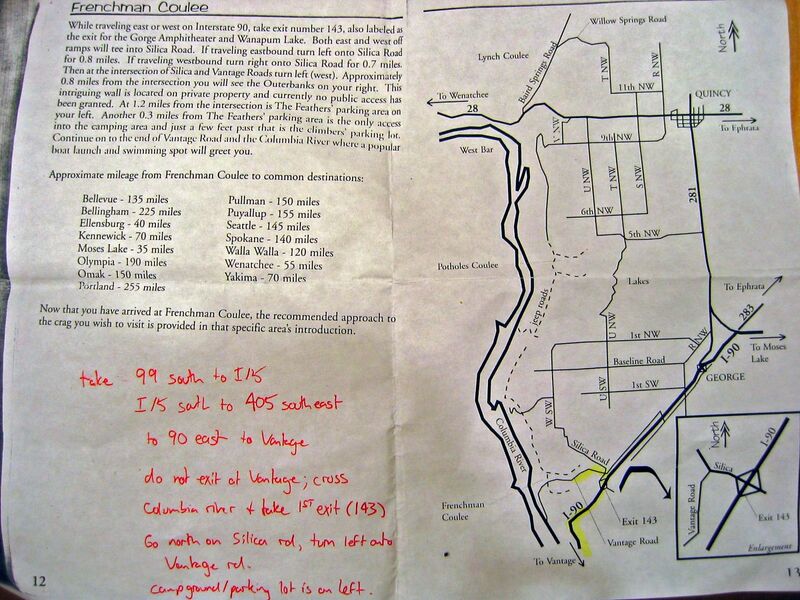 Frenchman Coulee
While traveling east or west on Interstate 90, take exit number 143, also labeled as
the exit for the Gorge Amphitheater and Wanapum Lake. Both east and west off
ramps will tee into Silica Road. If traveling eastbound turn left onto Silica Road
for 0.8 miles. If traveling westbound turn right onto Silica Road for 0.7 miles.
Then at the intersection of Silica and Vantage Roads turn left (west). Approximately
0.8 miles from the intersection you will see the Outerbanks on your right. This
intriguing wall is located on private property and currently no public access has
been granted. At 1.2 miles from the intersection is The Feathers' parking area on
your left. Another 0.3 miles from The Feathers' parking area is the only access
into the camping area and just a few feet past that is the climbers' parking lot.
Continue on to the end of Vantage Road and the Columbia River where a popular
boat launch and swimming spot will greet you.
Approximate mileage from Frenchman Coulee to common destinations:
Bellevue - 135 miles
Bellingham - 225 miles
Ellensburg - 40 miles
Kennewick - 70 miles
Moses Lake - 35 miles
Olympia - 190 miles
Omak - 150 miles
Portland - 255 miles
Pullman - 150 miles
Puyallup - 155 miles
Seattle - 145 miles
Spokane - 140 miles
Walla Walla - 120 miles
Wenatchee - 55 miles
Yakima - 70 miles
Now that you have arrived at Frenchman Coulee, the recommended approach to
the crag you wish to visit is provided in that specific area's introduction.
take 99 south to I/5
I/5 south to 405 southeast
to 90 east to Vantage
do not exit at Vantage; cross
Columbia river + take 1ST exit (143)
Go north on Silica rd, turn left onto
Vantage rd.
campground/parking lot is on left.
12
Willow Springs Road
North
Lynch Coulee
Baird Springs Road
T NW
R NW
11th NW
To Wenatchee
28
QUINCY
28
To Ephrata
V NW
9th NW
West Bar
U NW
T NW
S NW
281
6th NW
5th NW
Potholes Coulee
Lakes
jeep roads
To Ephrata
283
U NW
1st NW
R NW
I-90
To Moses
Lake
Baseline Road
GEORGE
U SW
1st SW
W SW
Columbia River
Silica Road
Frenchman
Coulee
I-90
Exit 143
Vantage Road
To Vantage
North
I-90
Silica
Vantage Road
Exit 143
Enlargement
13